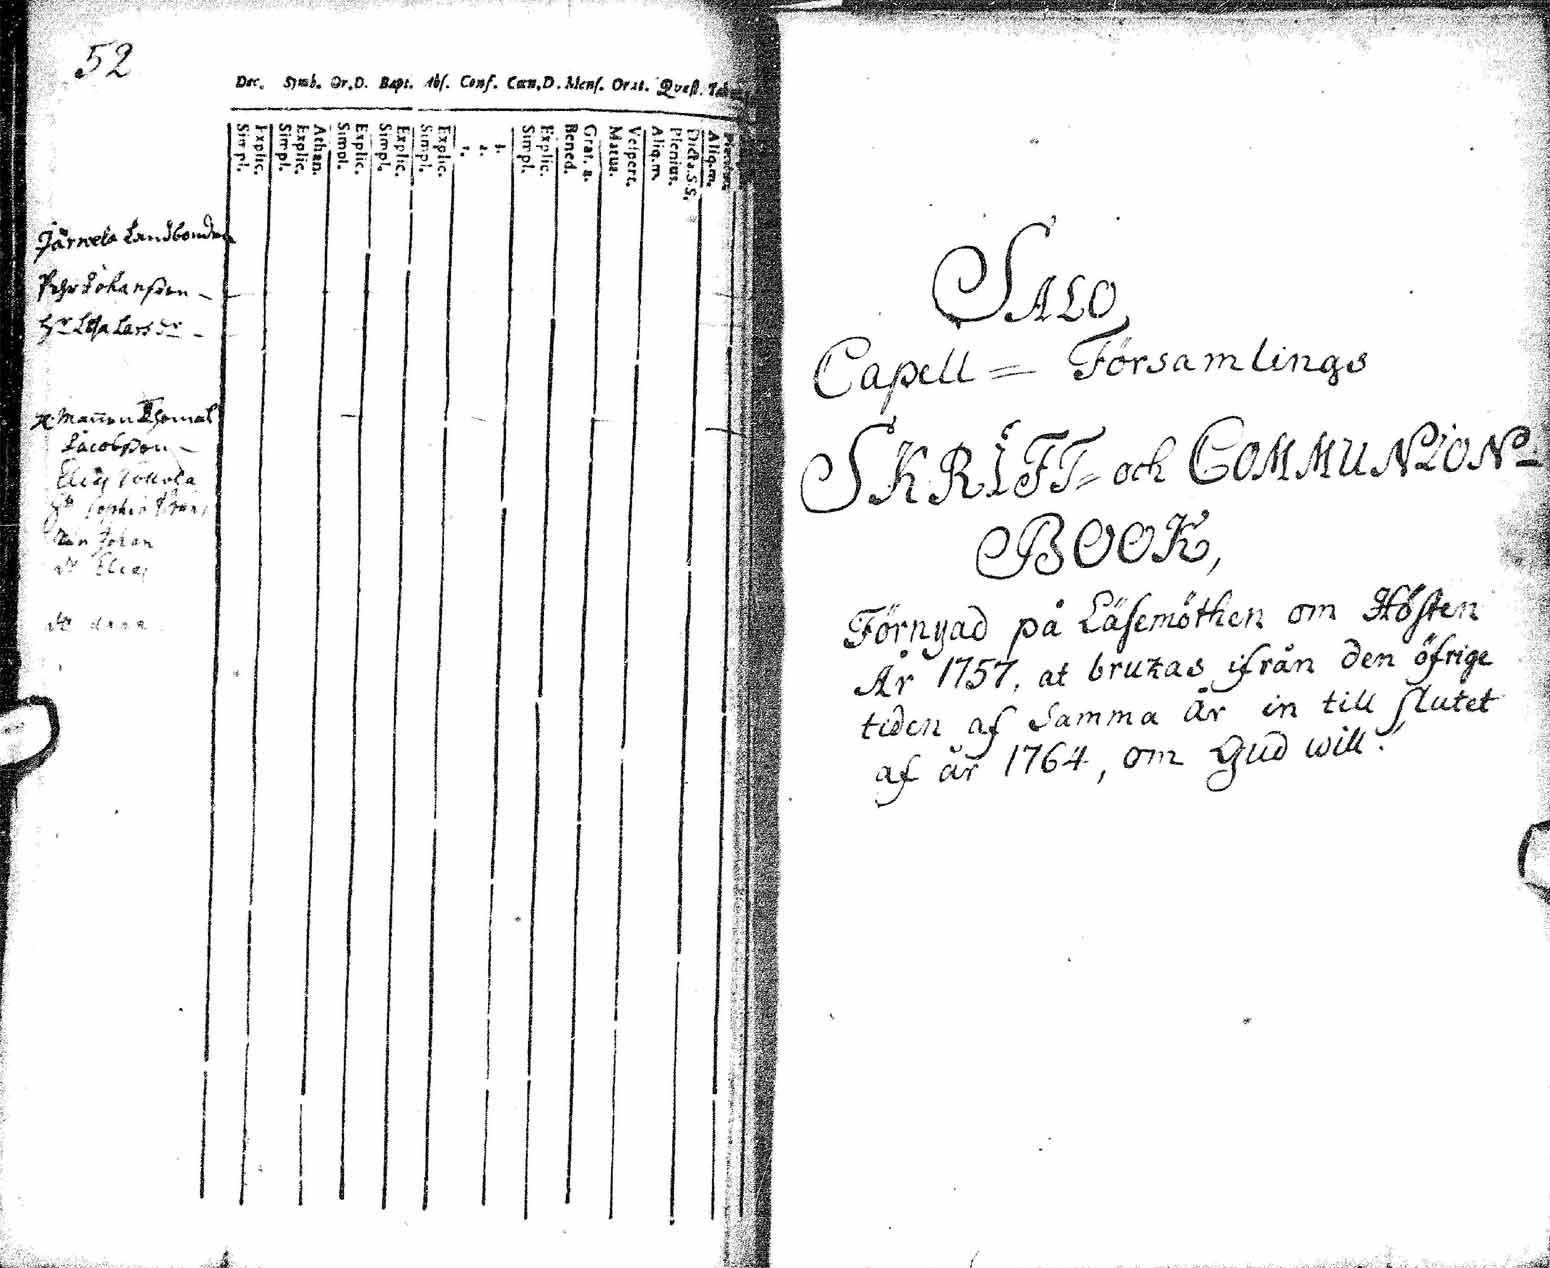 52
Dec. Symb. Or.D. Bapt. Abs. Conf. Cœn.D. Mens. Orat. Quæst.
Simpl.
Explic.
Simpl.
Explic.
Athan.
Simpl.
Explic.
Simpl.
Explic.
Simpl.
Explic.
1.
2.
3.
Simpl.
Explic.
Bened.
Grat. a.
Matut.
Vespert.
Aliq.m
Plenius.
Dicta.S.S.
Aliq.m.
Järwelä Landbonden
Pehr Johansson
Hu Lisa Larsdr
Mannen Thomas
Jacobsson
Elias
Sophia
Johan
Elias
SALO
Capell = Församlings
SKRIFT= och COMMUNION=
BOOK,
Förnyad på Läsemöthen om Hösten
År 1757, at brukas ifrån den öfrige
tiden af samma År in till slutet
af år 1764, om Gud will.